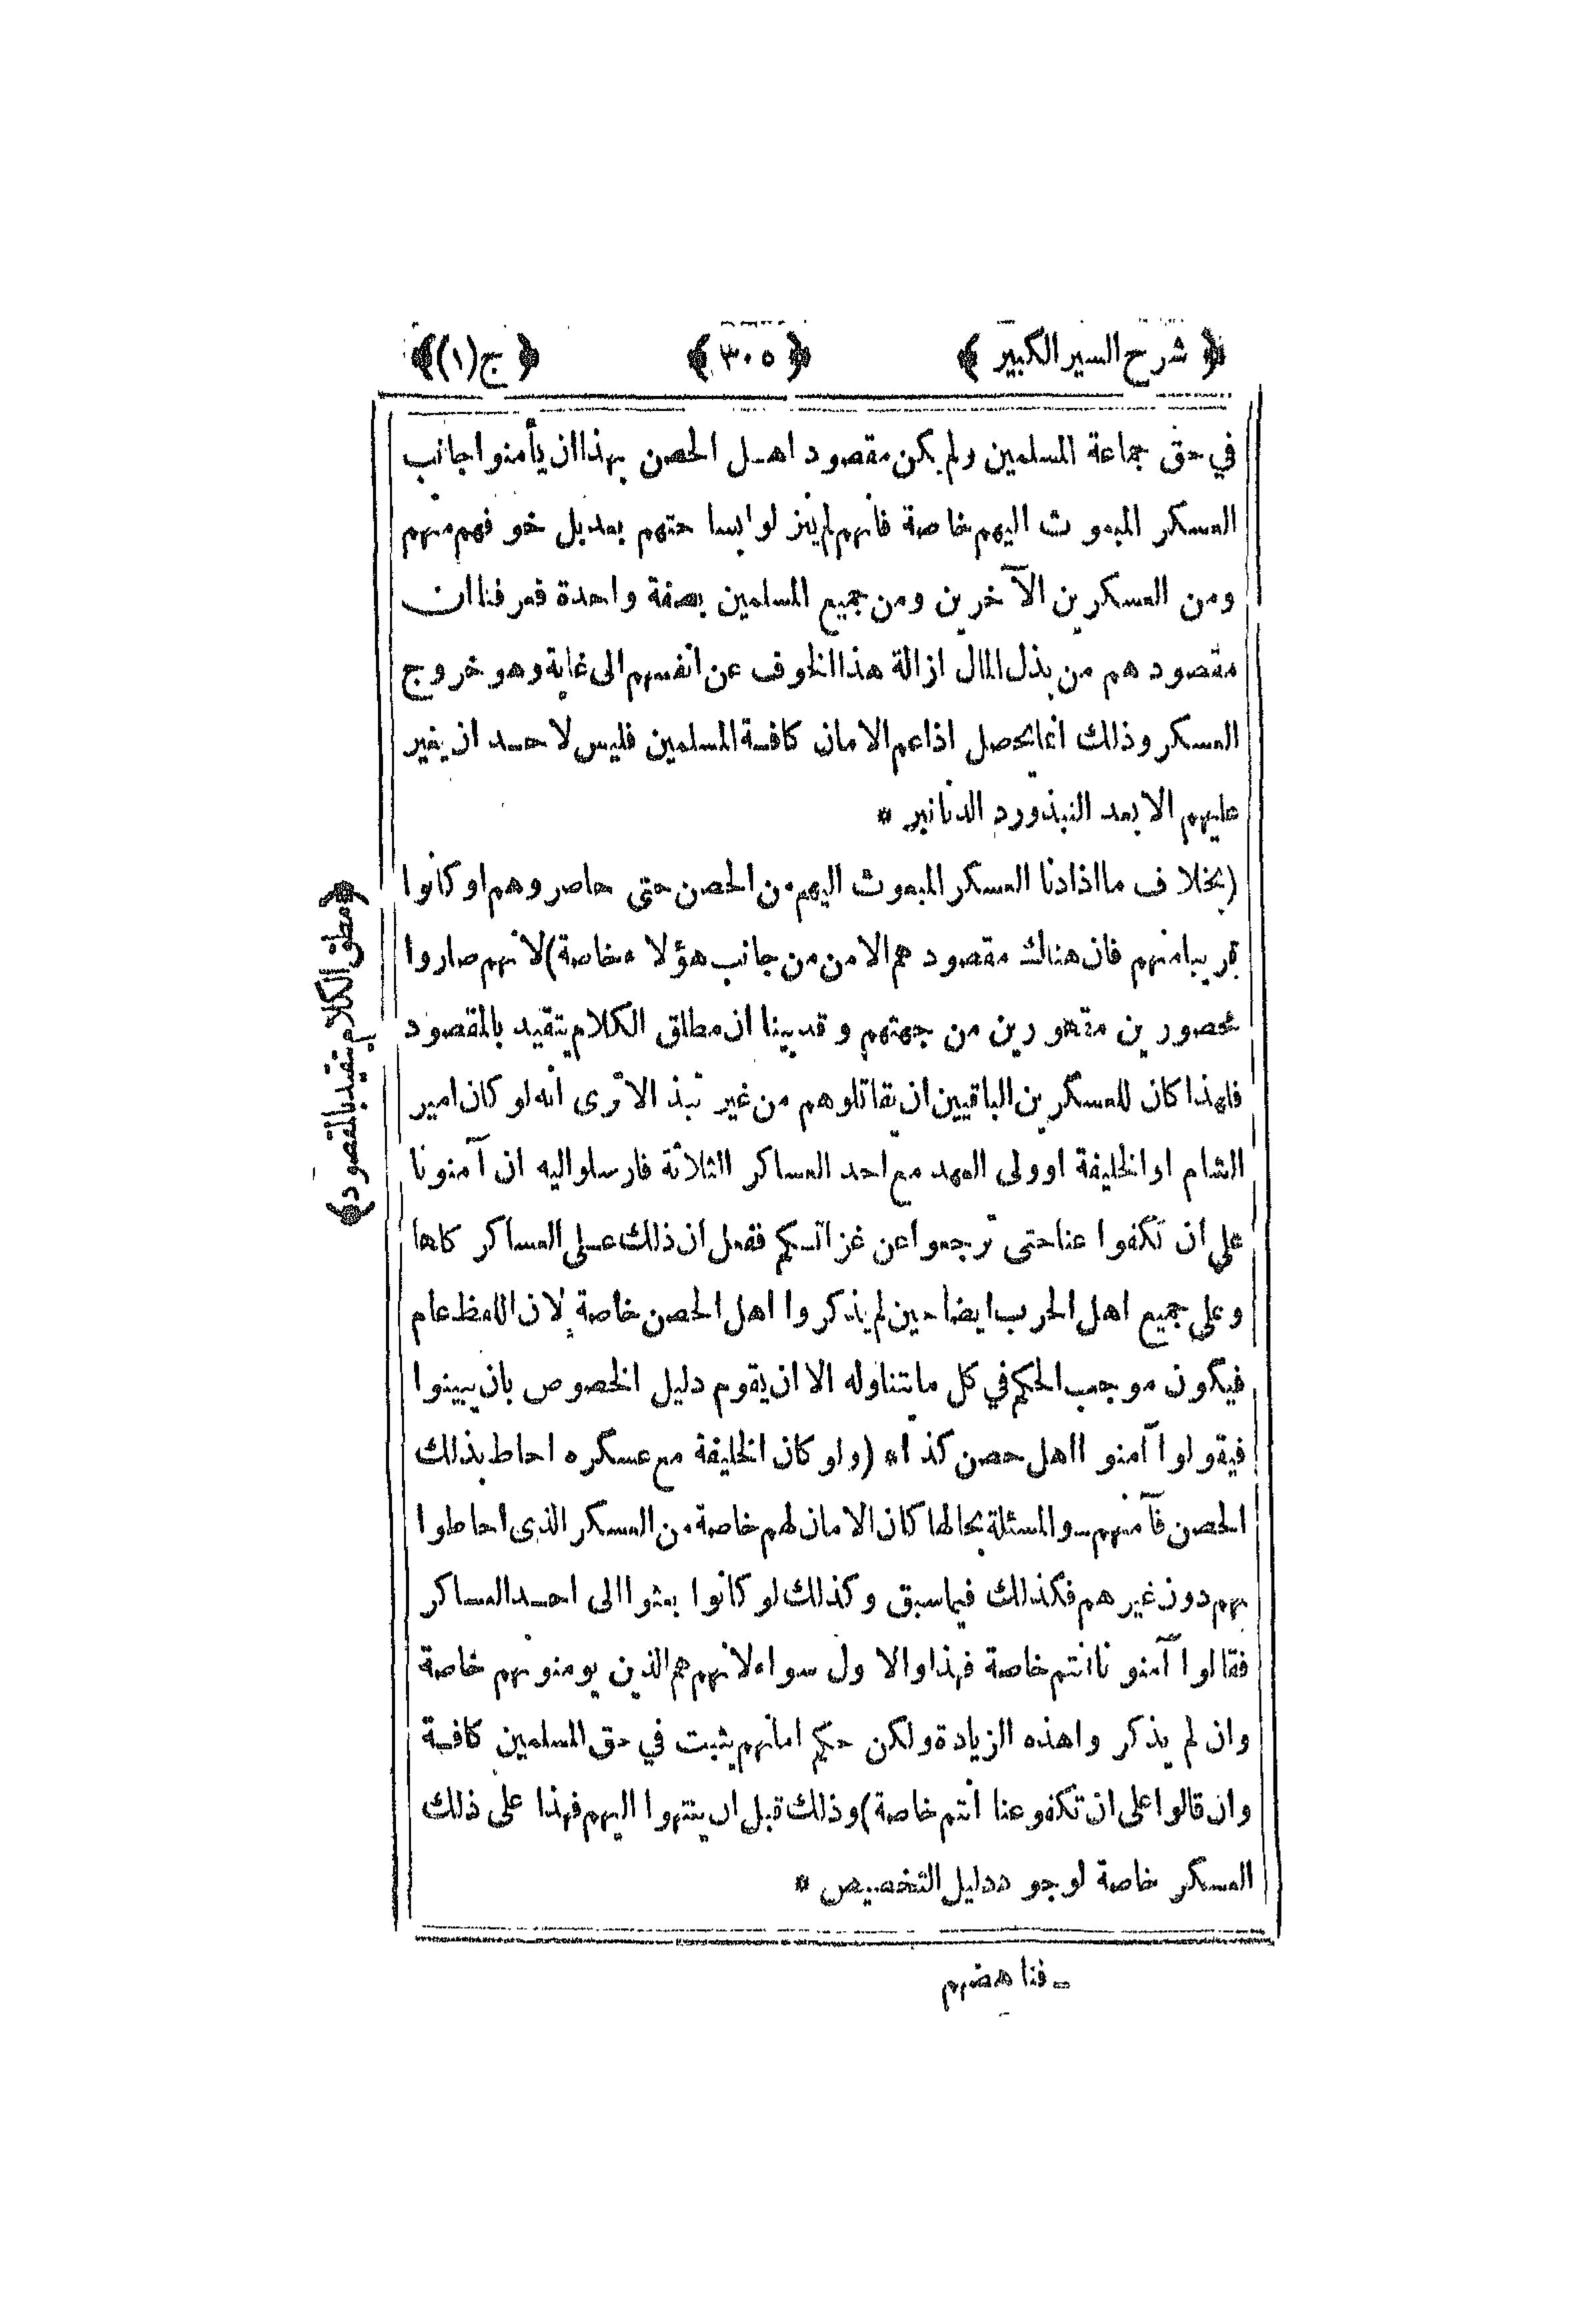 ﴿ شرح السير الكبير ﴾ ﴿ ٣٠٥ ﴾ ﴿ ج (١) ﴾
في حق جماعة المسلمين ولم يكن مقصود اهل الحصن بهذا ان يأمنوا جانب
العسكر المبعوث اليهم خاصة فأنهم لم ينزلوا بساحتهم بعد بل خوفهم منهم
ومن العسكرين الآخرين ومن جميع المسلمين بصفة واحدة فعرفنا ان
مقصود هم من بذل المال ازالة هذا الخوف عن انفسهم الى غاية وهو خروج
العسكر وذلك انما يحصل اذا عم الامان كافة المسلمين فليس لاحد ان يغير
عليهم الا بعد النبذ ورد الدنانير *
(بخلاف ما اذا دنا العسكر المبعوث اليهم من الحصن حتى حاصروهم او كانوا
قريبا منهم فان هناك مقصود هم الامن من جانب هؤلاء خاصة) لانهم صاروا
محصورين مقهورين من جهتهم وقد بينا ان مطلق الكلام يتقيد بالمقصود
فلهذا كان للعسكرين الباقيين ان يقاتلوهم من غير نبذ الا ترى انه لو كان امير
الشام او الخليفة او ولى العهد مع احد العساكر الثلاثة فارسلوا اليه ان آمنونا
على ان تكفوا عنا حتى ترجعوا عن غزاتكم ففعل ان ذلك على العساكر كلها
وعلى جميع اهل الحرب ايضا حين لم يذكروا اهل الحصن خاصة لان اللفظ عام
فيكون موجب الحكم في كل ما يتناوله الا ان يقوم دليل الخصوص بان يبينوا
فيقولوا آمنوا اهل حصن كذا * (ولو كان الخليفة مع عسكره احاط بذلك
الحصن فآمنهم ــ والمسئلة بحالها كان الامان لهم خاصة من العسكر الذى احاطوا
بهم دون غيرهم فكذلك فيما سبق وكذلك لو كانوا بعثوا الى احد العساكر
فقالوا آمنونا انتم خاصة فهذا والاول سواء لانهم هم الذين يومنونهم خاصة
وان لم يذكروا هذه الزيادة ولكن حكم امانهم يثبت في حق المسلمين كافة
وان قالوا على ان تكفو عنا انتم خاصة) وذلك قبل ان ينتهوا اليهم فهذا على ذلك
العسكر خاصة لوجود دليل التخصيص *
﴿ مطلق الكلام يتقيد بالمقصود ﴾
ــ فنا هضهم